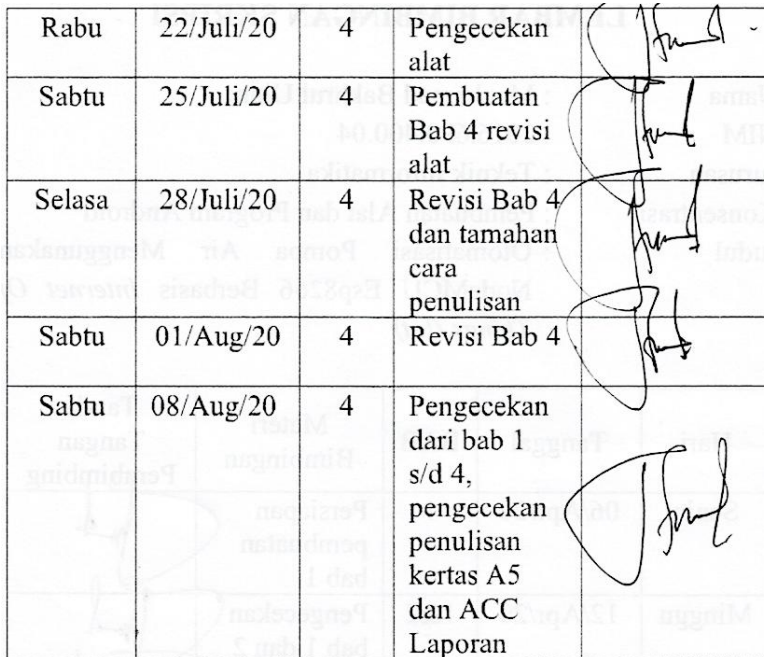 Rabu 22/Juli/20 4 Pengecekan
alat
Sabtu 25/Juli/20 4 Pembuatan
Bab 4 revisi
alat
Selasa 28/Juli/20 4 Revisi Bab 4
dan tamahan
cara
penulisan
Sabtu 01/Aug/20 4 Revisi Bab 4
Sabtu 08/Aug/20 4 Pengecekan
dari bab 1
s/d 4,
pengecekan
penulisan
kertas A5
dan ACC
Laporan